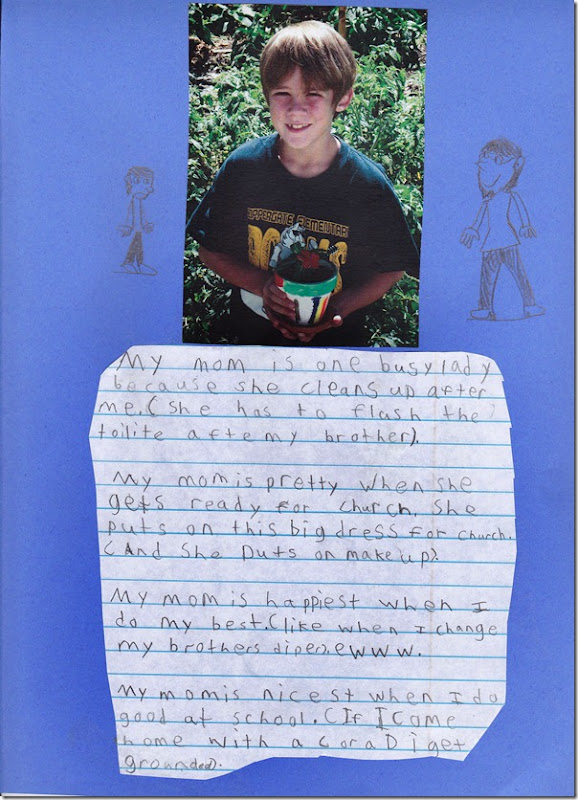 COPPERGATE ELEMENTARY
My mom is one busy lady
because she cleans up after
me. (she has to flush the
toilite afte my brother).
My mom is pretty when she
gets ready for church. She
puts on this big dress for church.
(And She Puts on makeup).
My mom is happiest when I
do my best. (like when I change
my brothers diper). ewww.
My mom is nicest when I do
good at school. (If I come
home with a C or a D i get
grounded).